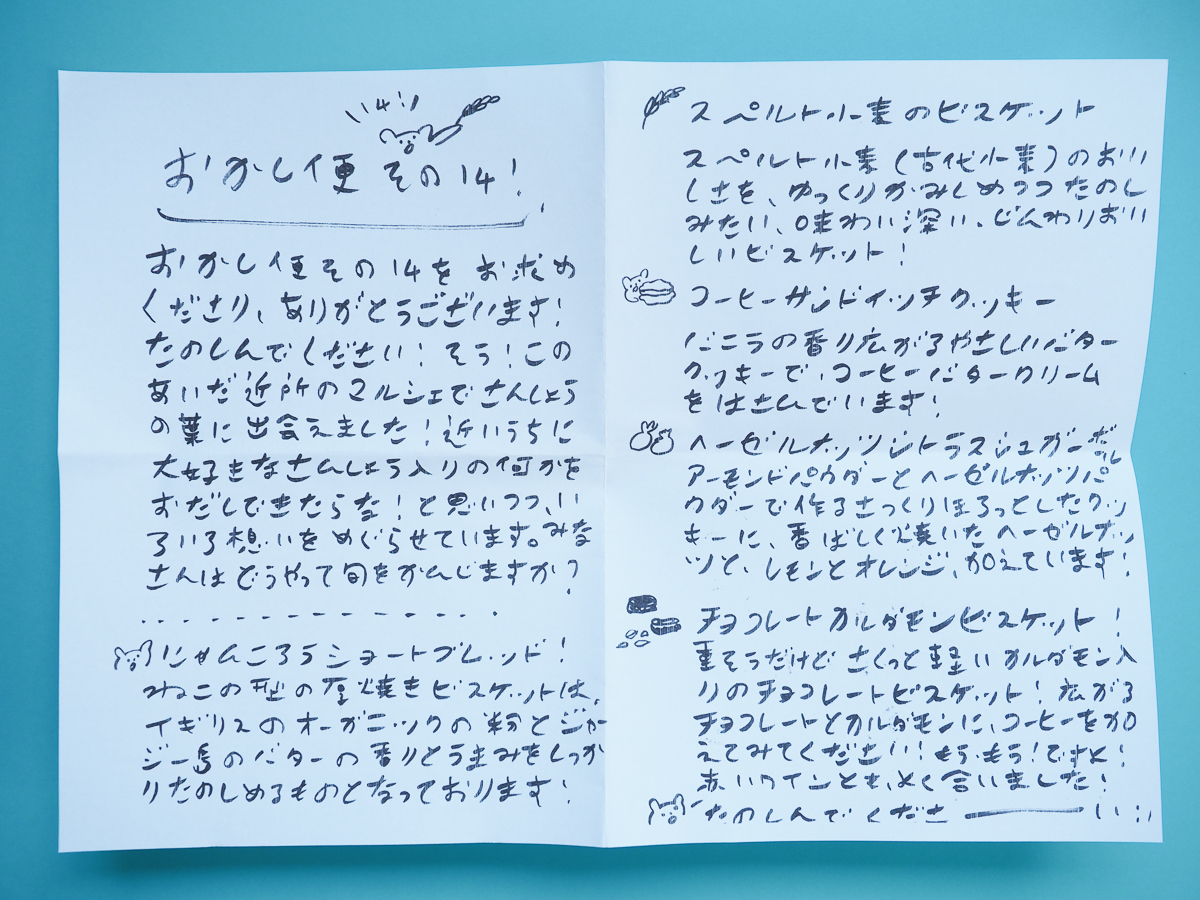 おかし便 その14!
おかし便その14をお求め
くださり、ありがとうございます!
たのしんでください! そう! この
あいだ近所のマルシェでさんしょう
の葉に出会えました! 近いうちに
大好きなさんしょう入りの何かを
おだしできたらな! と思いつつ、い
ろいろ想いをめぐらせています。みな
さんはどうやって旬をかんじますか?
にゃんころうショートブレッド!
ねこの型の厚焼きビスケットは、
イギリスのオーガニックの粉とジャー
ジー島のバターの香りとうまみをしっか
りたのしめるものとなっております!
スペルト小麦のビスケット
スペルト小麦(古代小麦)のおい
しさを、ゆっくりかみしめつつたのし
みたい、味わい深い、じんわりおい
しいビスケット!
コーヒーサンドイッチクッキー
バニラの香り広がるやさしいバター
クッキーで、コーヒーバタークリーム
をはさんでいます!
ヘーゼルナッツシトラスシュガーボール
アーモンドパウダーとヘーゼルナッツパ
ウダーで作るさっくりほろっとしたクッ
キーに、香ばしく焼いたヘーゼルナッ
ツと、レモンとオレンジ、加えています!
チョコレートカルダモンビスケット!
重そうだけど さくっと軽いカルダモン入
りのチョコレートビスケット! 広がる
チョコレートとカルダモンに、コーヒーを加
えてみてください! もう、もう!ですよ!
赤いワインとも、よく合いました!
たのしんでくださーーーい!!